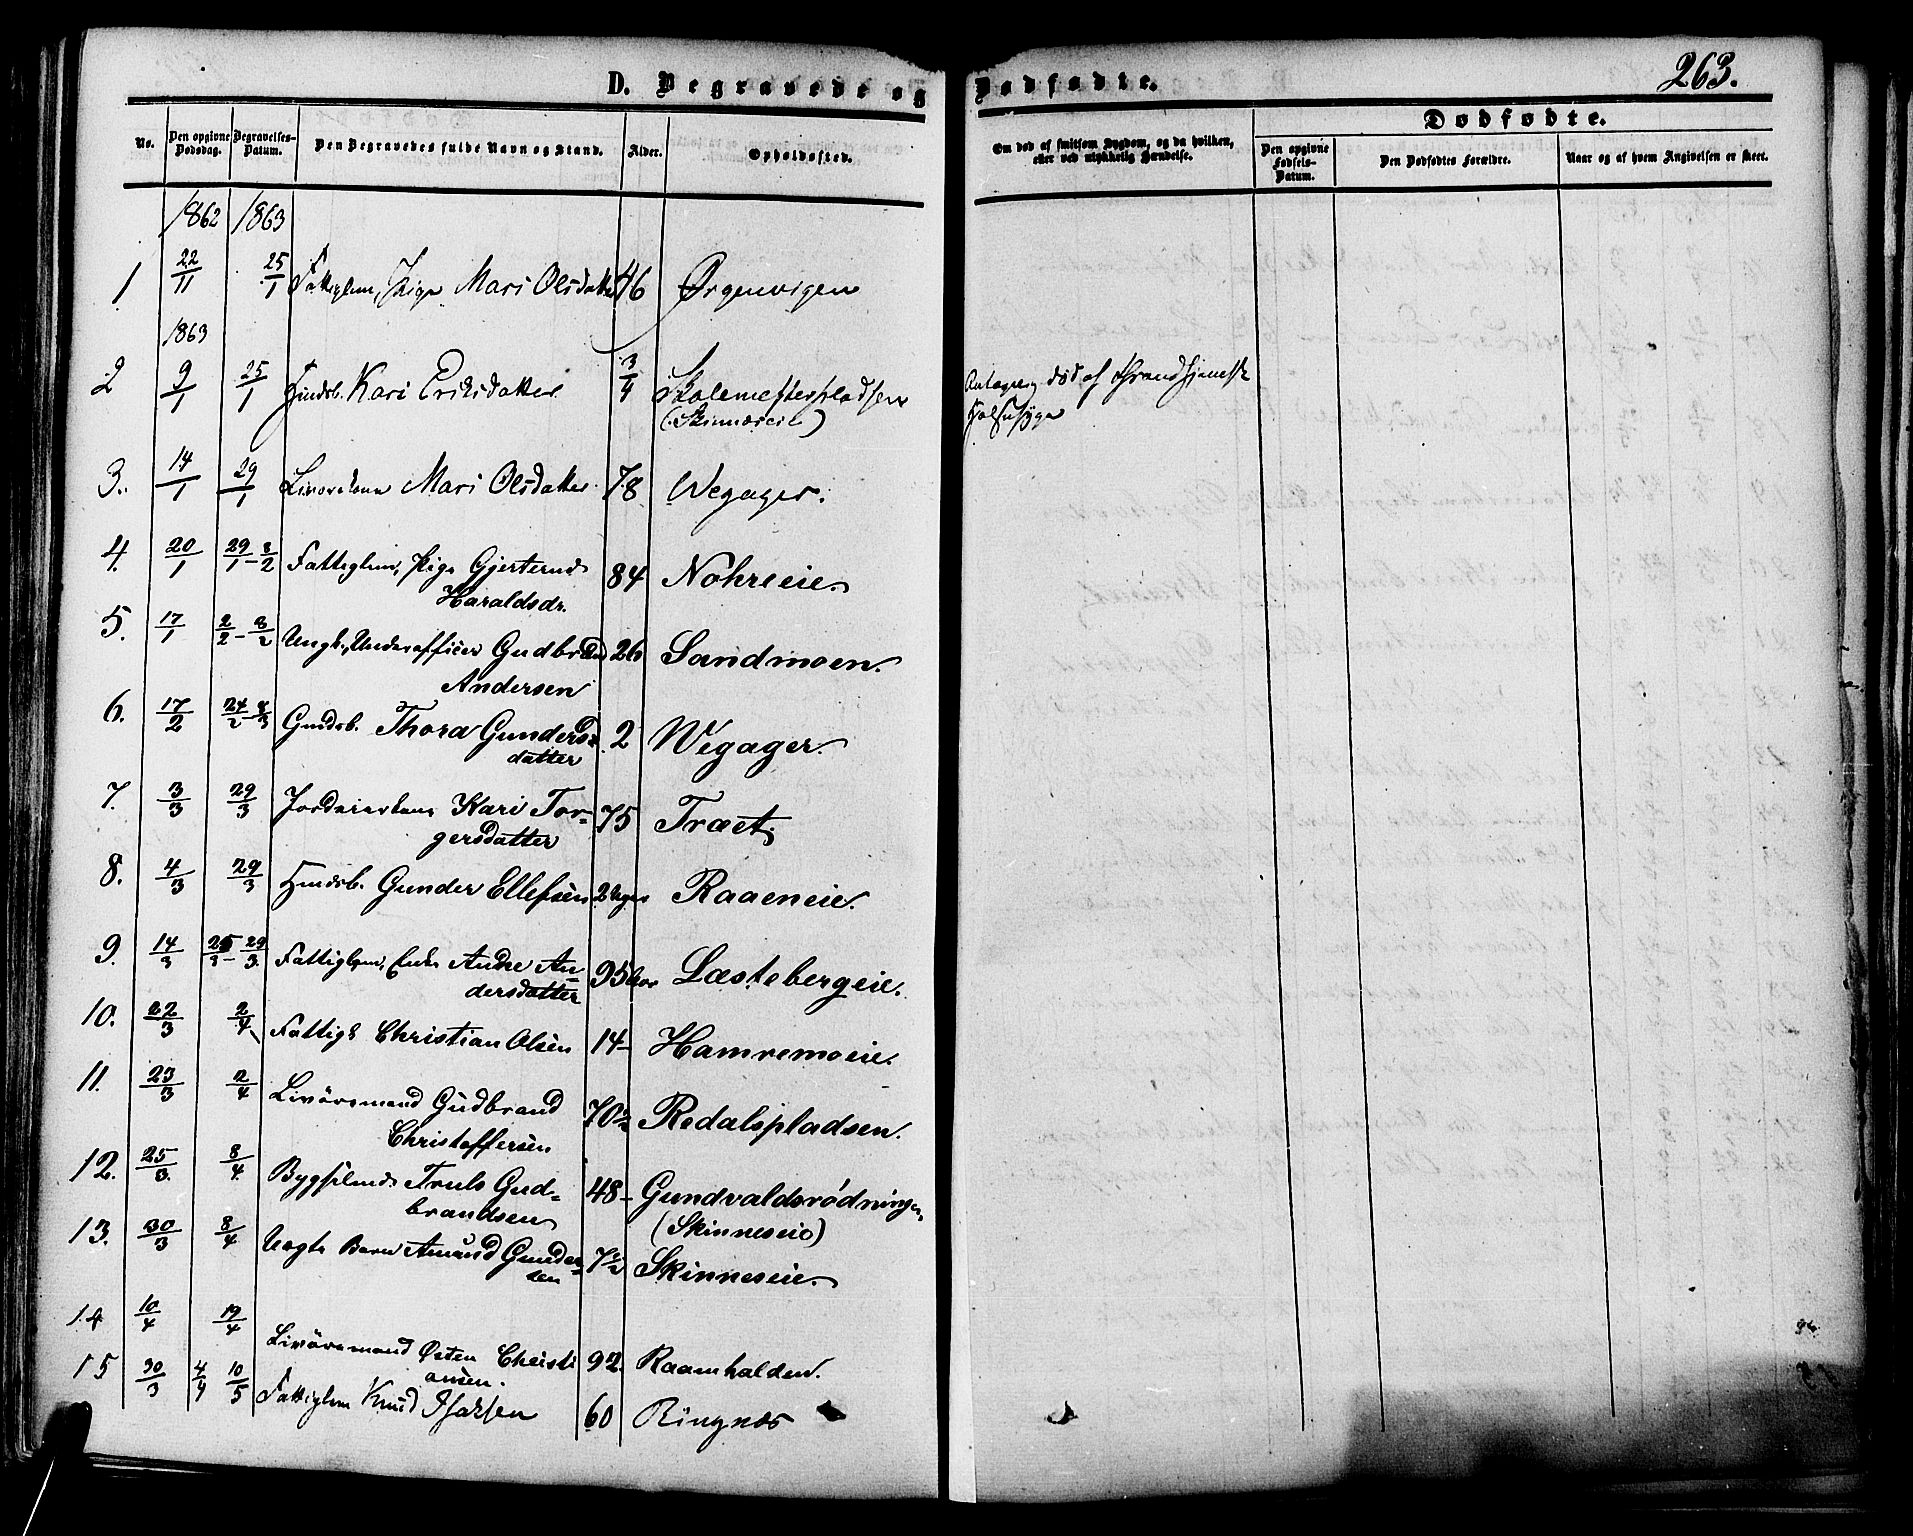 263.
D. Begravede og Dødfødte.
No.
Den opgivne Dødsdag.
Begravelses-Datum.
Den Begravedes fulde Navn og Stand.
Alder.
Opholdssted.
Om død af smitsom Sygdom, og da hvilken, eller ved ulykkelig Hændelse.
Dødfødte.
Den opgivne Fødsels-Datum.
Den Dødfødtes Forældre.
Naar og af hvem Angivelsen er skeet.
1862 1863
1 22/11 25/1 Fattiglem, Pige Mari Olsdatter 46 Ørgenvigen
1863
2 9/1 25/1 Huusb. Kari Eriksdatter 3/4 Skolemesterpladsen
(Skinneseie) Antagelig død af
3. 14/1 29/1 Mari Olsdatter 78 Wegager.
4. 20/1 29/1 - 8/2 Fattiglem, Pige Gjertrud 84 Nohreeie.
Haraldsdr.
5. 17/1 2/2 - 8/2 Ungk., Underofficer Gudbrand 26 Sandmoen.
Andersen
6. 17/2 24/2 - 8/3 Huusb. Thora Gunders- 2 Wegager.
datter
7. 3/3 29/3 Kari Tor- 75 Træet.
gersdatter
8. 4/3 29/3 Huusb. Gunder Ellefsen 2 Uger Raaeneie.
9. 14/3 25/3 - 29/3 Fattiglem, Enke Andre An- 95 Aar Læstebergeie.
dersdatter
10. 22/3 2/4 Fattigl Christian Olsen 14 - Hamremoeie.
11. 23/3 2/4 Livøresmand Gudbrand 70 1/2 Redalspladsen.
Christoffersen
12. 25/3 8/4 Truls Gud- 48 - Gundvaldsrødningen
brandsen (Skinneseie)
13. 30/3 8/4 Barn Amund Gunder- 7 1/2 Skinneseie.
sen
14 10/4 19/4 Livøresmand Østen Christi 92. Raamhalden.
ansen.
15 30/3 4/4 10/5 Fattiglem Knud Ifarsen 60 Ringnes